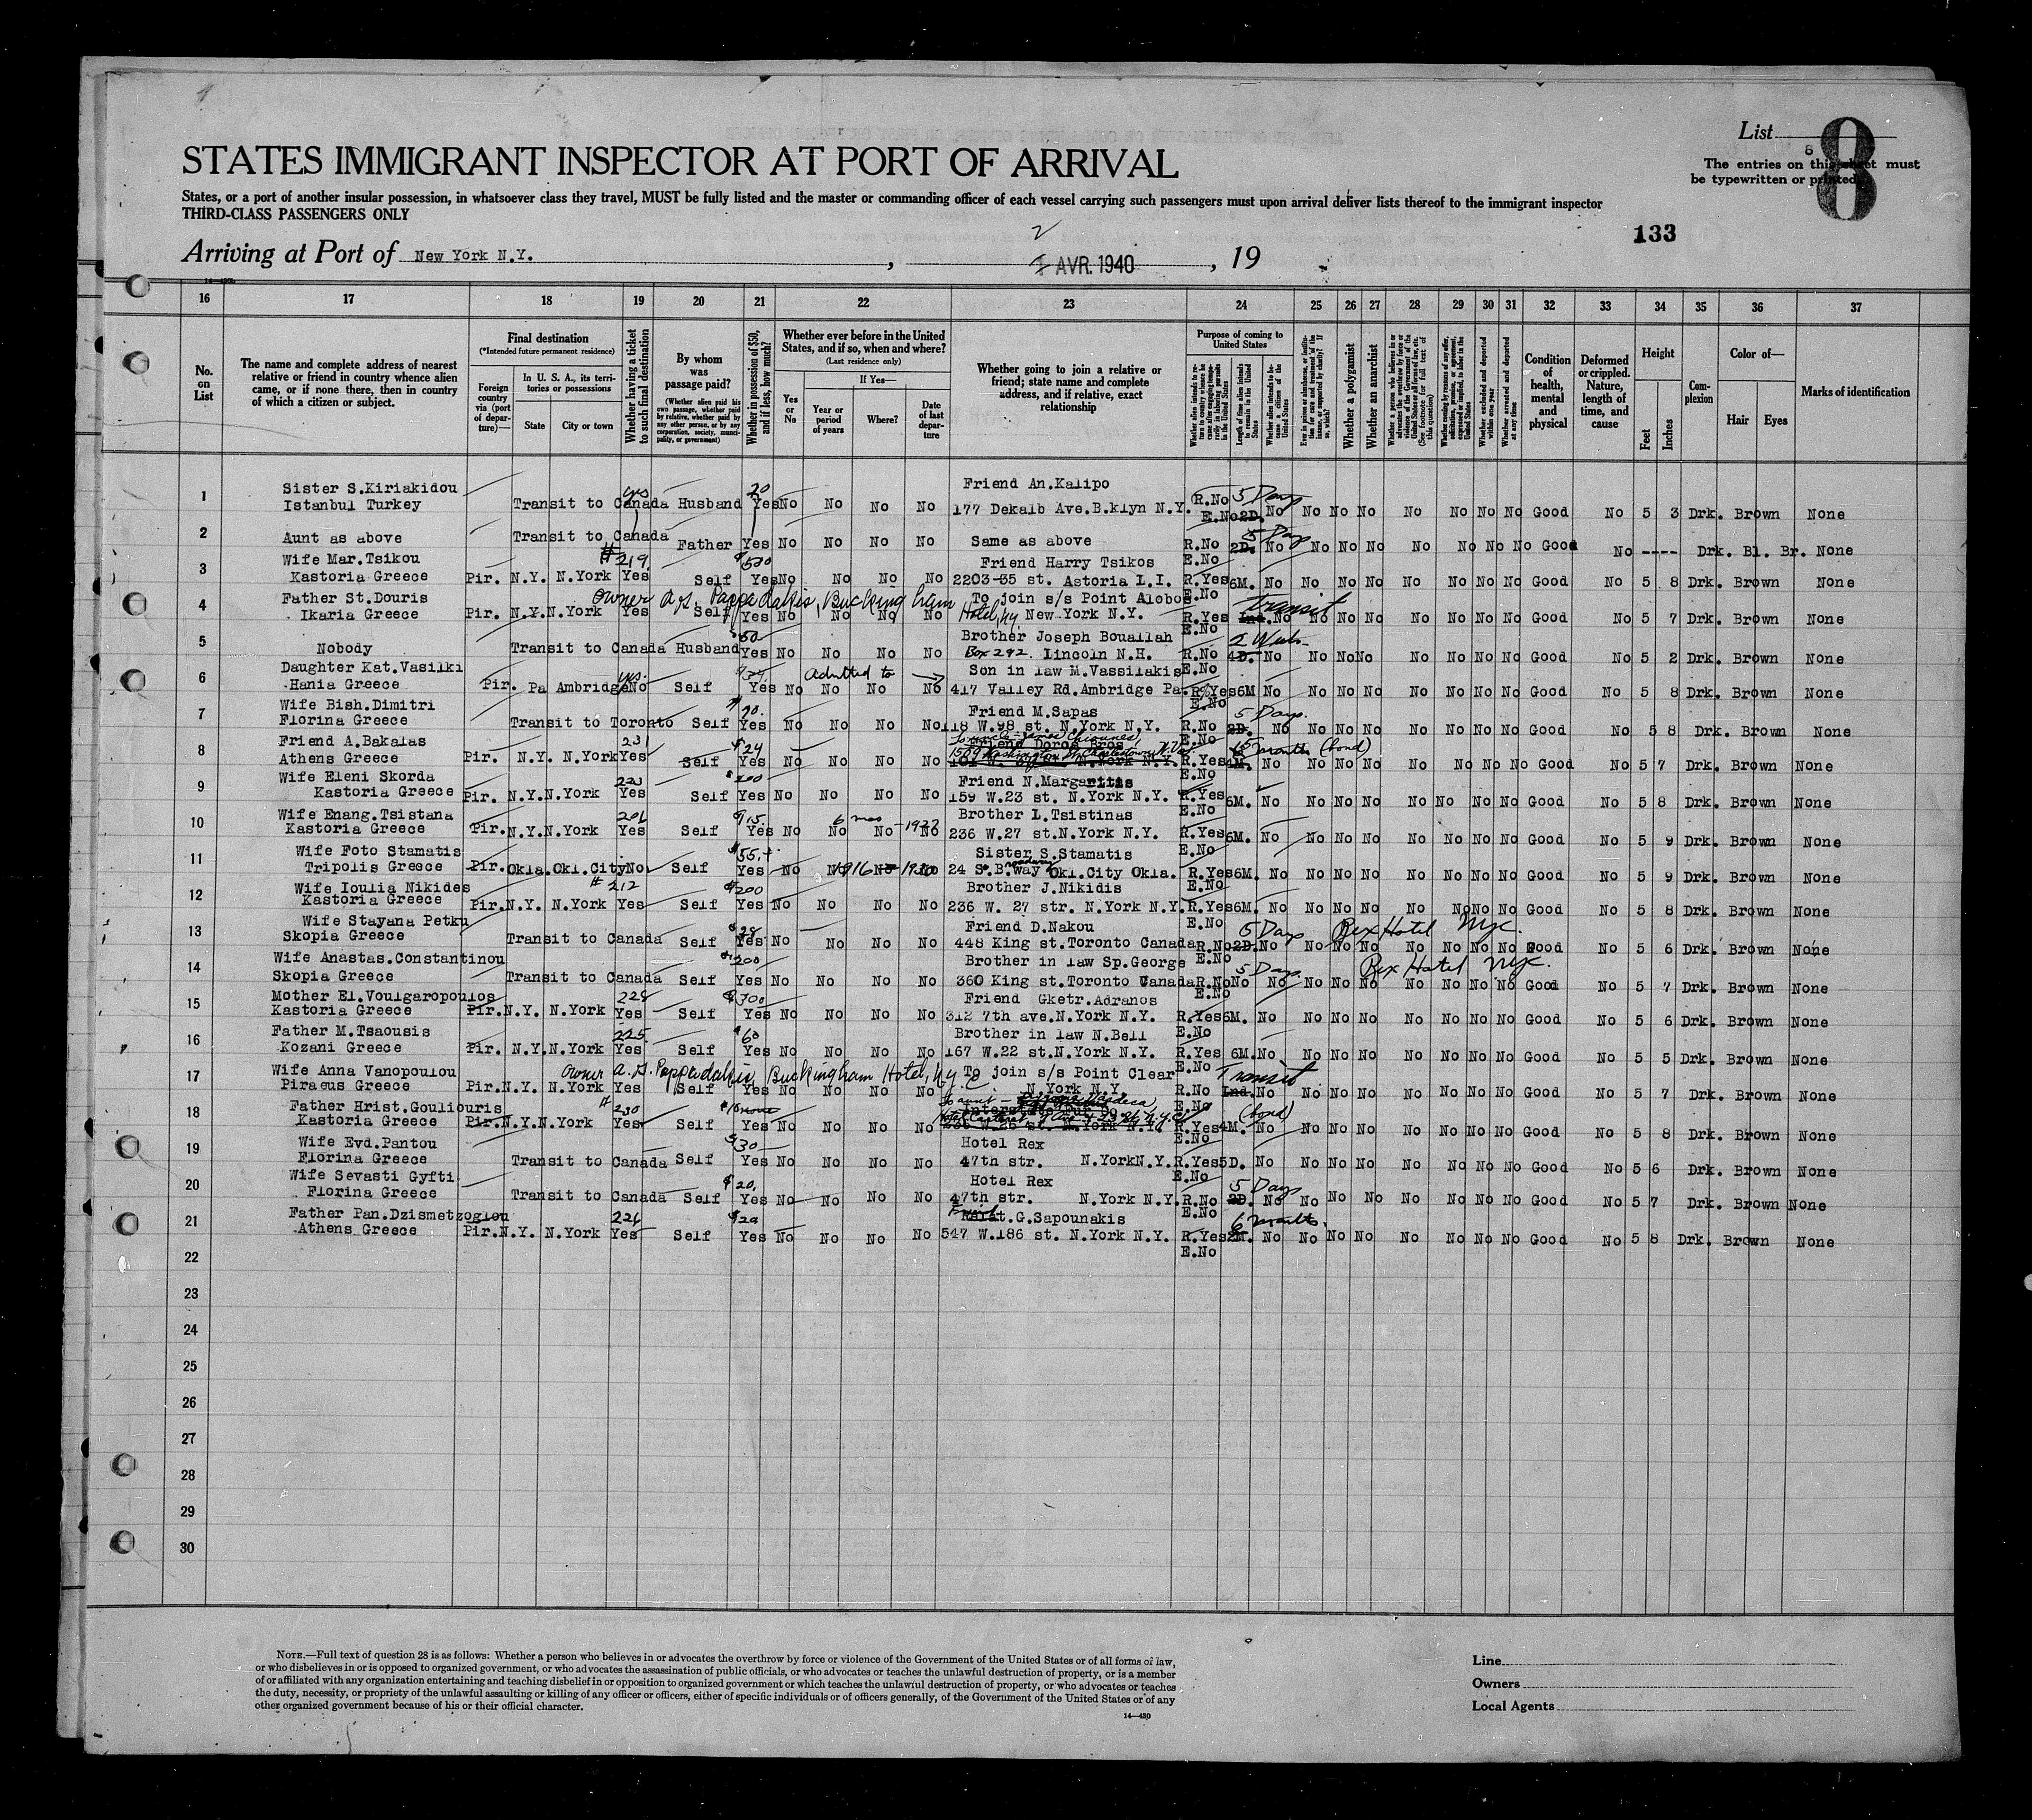 List 8
8
The entries on this sheet must
be typewritten or printed.
STATES IMMIGRANT INSPECTOR AT PORT OF ARRIVAL
States, or a port of another insular possession, in whatsoever class they travel, MUST be fully listed and the master or commanding officer of each vessel carrying such passengers must upon arrival deliver lists thereof to the immigrant inspector
THIRD-CLASS PASSENGERS ONLY
133
Arriving at Port of New York N.Y. , 2 AVR. 1940 , 19
16 17 18 19 20 21 22 23 24 25 26 27 28 29 30 31 32 33 34 35 36 37
No. on List
The name and complete address of nearest relative or friend in country whence alien came, or if none there, then in country of which a citizen or subject.
Final destination
(*Intended future permanent residence)
Foreign country via (port of departure)—
In U. S. A., its territories or possessions
State
City or town
Whether having a ticket to such final destination
By whom was passage paid?
(Whether alien paid his own passage, whether paid by relative, whether paid by any other person, or by any corporation, society, municipality, or government)
Whether in possession of $50, and if less, how much?
Whether ever before in the United States, and if so, when and where?
(Last residence only)
Yes or No
If Yes—
Year or period of years
Where?
Date of last departure
Whether going to join a relative or friend; state name and complete address, and if relative, exact relationship
Purpose of coming to United States
Length of time alien intends to remain in the United States
Whether a polygamist
Whether an anarchist
Whether excluded and deported within one year
Whether arrested and deported at any time
Condition of health, mental and physical
Deformed or crippled. Nature, length of time, and cause
Height
Feet
Inches
Complexion
Color of—
Hair
Eyes
Marks of identification
1 Sister S.Kiriakidou Istanbul Turkey Transit to Canada yes Husband 20 Yes No No No No Friend An.Kalipo 177 Dekalb Ave.B.klyn N.Y. R.No E.No 2D. 5 Days No No No No No No No No Good No 5 3 Drk. Brown None
2 Aunt as above Transit to Canada Father Yes No No No No Same as above R.No E.No 2D. 5 Days No No No No No No No No Good No ---- Drk. Bl. Br. None
3 Wife Mar.Tsikou Kastoria Greece Pir. N.Y. N.York #219 Yes Self $500 Yes No No No No Friend Harry Tsikos 2203-65 st. Astoria L.I. R.Yes E.No 6M. No No No No No No No No Good No 5 8 Drk. Brown None
4 Father St.Douris Ikaria Greece Pir. N.Y. N.York Yes Self Yes No No No No owner A.G. Pappadakis, Buckingham Hotel, ny To join s/s Point Alobos New York N.Y. R.Yes E.No Ind. Transit No No No No No No No No Good No 5 7 Drk. Brown None
5 Nobody Transit to Canada Husband $50 Yes No No No No Brother Joseph Bouallah Box 292. Lincoln N.H. R.No 4D. 2 Weeks No No No No No No No No Good No 5 2 Drk. Brown None
6 Daughter Kat.Vasilki Hania Greece Pir. Pa Ambridge yes No Self Yes No No No No Admitted to Son in law M.Vassilakis 417 Valley Rd.Ambridge Pa. R.Yes E.No 6M No No No No No No No No Good No 5 8 Drk. Brown None
7 Wife Bish.Dimitri Florina Greece Transit to Toronto Self $20. Yes No No No No Friend M.Sapas 118 W.98 st. N.York N.Y. R.No E.No 2D. 5 Days. No No No No No No No No Good No 5 8 Drk. Brown None
8 Friend A.Bakalas Athens Greece Pir. N.Y. N.York 231 Yes Self $24 Yes No No No No Friend Doros Bros N.York N.Y. R.Yes 4M. months (bond) No No No No No No No No Good No 5 7 Drk. Brown None
9 Wife Eleni Skorda Kastoria Greece Pir. N.Y. N.York 223 Yes Self $200 Yes No No No No Friend N.Margaritis 159 W.23 st. N.York N.Y. R.Yes E.No 6M. No No No No No No No No Good No 5 8 Drk. Brown None
10 Wife Enang.Tsistana Kastoria Greece Pir. N.Y. N.York 206 Yes Self $15. Yes No No No No 6 mos Brother L.Tsistinas 236 W.27 st.N.York N.Y. R.Yes E.No 6M. No No No No No No No No Good No 5 9 Drk. Brown None
11 Wife Foto Stamatis Tripolis Greece Pir. Okla. Okl.City No Self $55. Yes No No 1916 No 1930 Sister S.Stamatis 24 S.B.way Okl.City Okla. R.Yes E.No 6M. No No No No No No No No Good No 5 9 Drk. Brown None
12 Wife Ioulia Nikides Kastoria Greece Pir. N.Y. N.York #212 Yes Self $200 Yes No No No No Brother J.Nikidis 236 W. 27 str. N.York N.Y. R.Yes E.No 6M. No No No No No No No No Good No 5 8 Drk. Brown None
13 Wife Stayana Petku Skopia Greece Transit to Canada Self $28 Yes No No No No Friend D.Nakou 448 King st.Toronto Canada R.No E.No 2D. 5 Days Rex Hotel Nyc. No No No No No No No No Good No 5 6 Drk. Brown None
14 Wife Anastas.Constantinou Skopia Greece Transit to Canada Self $200 Yes No No No No Brother in law Sp.George 360 King st.Toronto Canada R.No E.No 5 Days. Rex Hotel Nyc. No No No No No No No No Good No 5 7 Drk. Brown None
15 Mother El.Voulgaropoulos Kastoria Greece Pir. N.Y. N.York 228 Yes Self $300 Yes No No No No Friend Gketr.Adranos 312 7th ave.N.York N.Y. R.Yes E.No 6M. No No No No No No No No Good No 5 6 Drk. Brown None
16 Father M.Tsaousis Kozani Greece Pir. N.Y. N.York 225. Yes Self $60 Yes No No No No Brother in law N.Bell 167 W.22 st.N.York N.Y. R.Yes E.No 6M. No No No No No No No No Good No 5 5 Drk. Brown None
17 Wife Anna Vanopoulou Piraeus Greece Pir. N.Y. N.York Yes Self Yes No No No No owner A.G. Pappadakis, Buckingham Hotel, N.Y.C To join s/s Point Clear N.York N.Y. R.No E.No Ind. Transit No No No No No No No No Good No 5 7 Drk. Brown None
18 Father Hrist.Gouliouris Kastoria Greece Pir. N.Y. N.York #230 Yes Self Yes No No No No R.Yes E.No 4M. (bond) No No No No No No No No Good No 5 8 Drk. Brown None
19 Wife Evd.Pantou Florina Greece Transit to Canada Self $30 Yes No No No No Hotel Rex 47th str. N.York N.Y. R.Yes E.No 5D. No No No No No No No No Good No 5 6 Drk. Brown None
20 Wife Sevasti Gyfti Florina Greece Transit to Canada Self $20. Yes No No No No Hotel Rex 47th str. N.York N.Y. R.No E.No 2D. 5 Days No No No No No No No No Good No 5 7 Drk. Brown None
21 Father Pan.Dzismetzoglou Athens Greece Pir. N.Y. N.York 226 Yes Self $20 Yes No No No No Friend G.Sapounakis 547 W.186 st. N.York N.Y. R.Yes E.No 2M. 6 months. No No No No No No No No Good No 5 8 Drk. Brown None
22
23
24
25
26
27
28
29
30
NOTE.—Full text of question 28 is as follows: Whether a person who believes in or advocates the overthrow by force or violence of the Government of the United States or of all forms of law,
or who disbelieves in or is opposed to organized government, or who advocates the assassination of public officials, or who advocates or teaches the unlawful destruction of property, or is a member
of or affiliated with any organization entertaining and teaching disbelief in or opposition to organized government or which teaches the unlawful destruction of property, or who advocates or teaches
the duty, necessity, or propriety of the unlawful assaulting or killing of any officer or officers, either of specific individuals or of officers generally, of the Government of the United States or of any
other organized government because of his or their official character.
14—430
Line
Owners
Local Agents